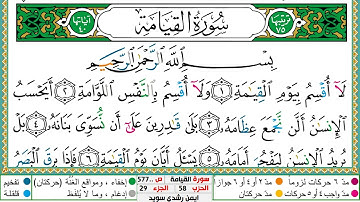 ترتيبها ٧٥ سُورَةُ القِيَامَةِ آياتها ٤٠
بِسْمِ اللَّهِ الرَّحْمَٰنِ الرَّحِيمِ
لَآ أُقْسِمُ بِيَوْمِ الْقِيَٰمَةِ ١ وَلَآ أُقْسِمُ بِالنَّفْسِ اللَّوَّامَةِ ٢ أَيَحْسَبُ
الْإِنسَٰنُ أَلَّن نَّجْمَعَ عِظَامَهُۥ ٣ بَلَىٰ قَٰدِرِينَ عَلَىٰٓ أَن نُّسَوِّىَ بَنَانَهُۥ ٤ بَلْ
يُرِيدُ الْإِنسَٰنُ لِيَفْجُرَ أَمَامَهُۥ ٥ يَسْـَٔلُ أَيَّانَ يَوْمُ الْقِيَٰمَةِ ٦ فَإِذَا بَرِقَ الْبَصَرُ
مد ٦ حركات لزوما مد ٢ أو ٤ أو ٦ جوازا
مد واجب ٤ أو ٥ حركات مد حركتان
سورة القيامة ص ..577
الحزب 58 الجزء 29
أيمن رشدي سويد
إخفاء، ومواقع الغنة (حركتان) تفخيم
إدغام، وما لا يلفظ قلقلة